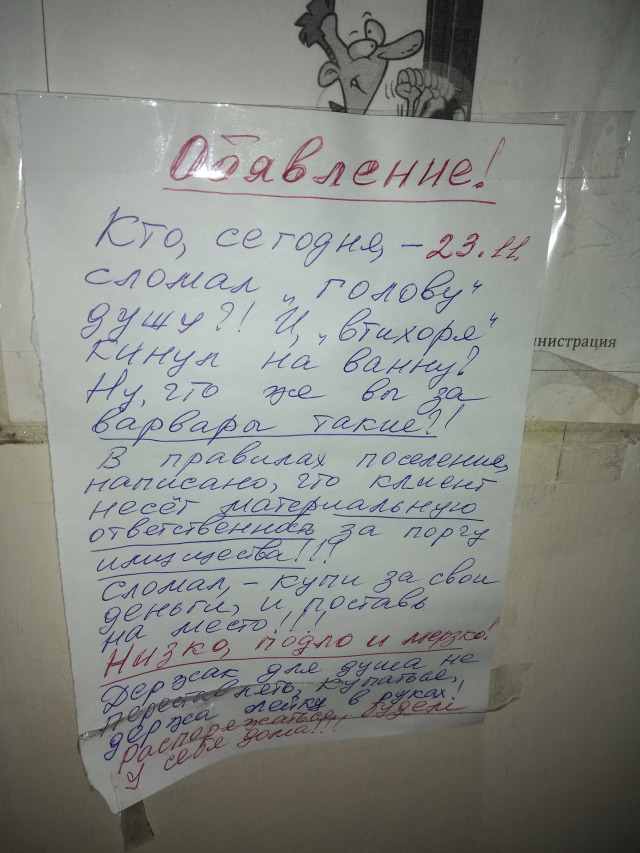 Обявление!
Кто, сегодня, – 23.11.
сломал „голову“
душу?! И, „втихоря“
кинул на ванну?
Ну, что же вы за
варвары такие?!
В правилах поселение,
написано, что клиент
несёт материальную
ответственность за порчу
имущества!!!
Сломал, – купи за свои
деньги, и поставь
на место!!!
Низко, подло и мерзко!
Держак для душа не
переставлять, купаться,
держа лейку в руках!
распоряжаться, будем
у себя дома!!!
нистрация